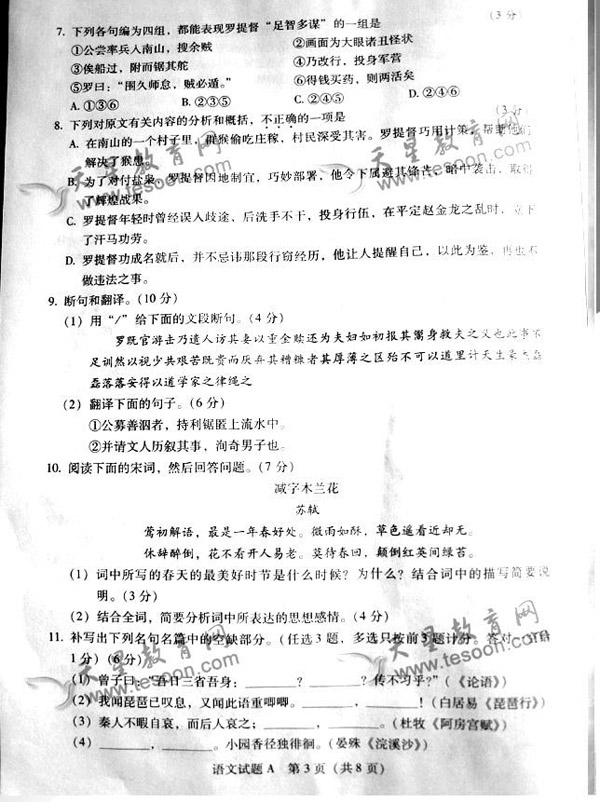 7. 下列各句编为四组，都能表现罗提督“足智多谋”的一组是 （3 分）
①公尝率兵入南山，搜余贼 ②画面为大眼诸丑怪状
③俟船过，附而锯其舵 ④乃改行，投身军营
⑤罗曰：“围久师怠，贼必遁。” ⑥得钱买药，则两活矣
A. ①③⑥ B. ②③⑤ C. ①③⑤ D. ②④⑥
8. 下列对原文有关内容的分析和概括，不正确的一项是 （3 分
A. 在南山的一个村子里，群猴偷吃庄稼，村民深受其害。罗提督巧用计策，帮助他们
解决了猴患。
B. 为了对付盐枭，罗提督因地制宜，巧妙部署、他令下属避其锋芒、暗中袭击，取得
了辉煌战果。
C. 罗提督年轻时曾经误入歧途、后洗手不干，投身行伍，在平定赵金龙之乱时，立下
了汗马功劳。
D. 罗提督功成名就后，并不忌讳那段行窃经历，他让人提醒自己，以此为鉴，再也不
做违法之事。
9. 断句和翻译。（10 分）
（1）用“/”给下面的文段断句。（4 分）
罗既官游击乃遣人访其妻以重金赎还为夫妇如初报其鬻身救夫之义也此事不
足训然以视少共艰苦既贵而厌弃其糟糠者其厚薄之区殆不可以道里计大生
磊落落安得以道学家之律绳之
（2）翻译下面的句子。（6 分）
①公募善泅者，持利锯匿上流水中。
②并请文人历叙其事，洵奇男子也。
10. 阅读下面的宋词，然后回答问题。（7 分）
减字木兰花
苏轼
莺初解语，最是一年春好处。微雨如酥，草色遥看近却无。
休辞醉倒，花不看开人易老。莫待春回，颠倒红英间绿苔。
（1）词中所写的春天的最美好时节是什么时候？为什么？结合词中的描写简要说
明。（3 分）
（2）结合全词，简要分析词中所表达的思想感情。（4 分）
11. 补写出下列名句名篇中的空缺部分。（任选 3 题，多选只按前 3 题计分，答对一个给
1 分）（6 分）
（1）曾子曰：“吾日三省吾身：________？________？传不习乎？”（《论语》）
（2）我闻琵琶已叹息，又闻此语重唧唧。________，________！（白居易《琵琶行》）
（3）秦人不暇自哀，而后人哀之；________，________。（杜牧《阿房宫赋》）
（4）________，________。小园香径独徘徊。（晏殊《浣溪沙》）
语文试题 A 第 3 页（共 8 页）
天星教育网
www.tesoon.com
天星教育网
www.tesoon.com
天星教育网
www.tesoon.com
天星教育网
www.tesoon.com